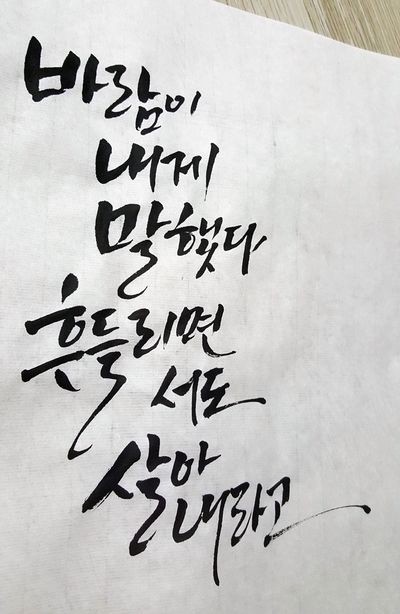 바람이
내게
말했다
흔들리면
서도
살아
내라고